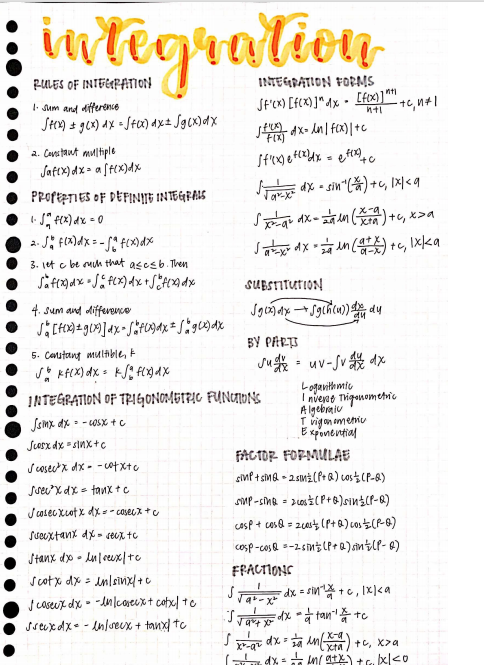 integration
RULES OF INTEGRATION
1. sum and difference
∫f(x) ± g(x) dx = ∫f(x) dx ± ∫g(x) dx
2. Constant multiple
∫af(x) dx = a ∫f(x) dx
PROPERTIES OF DEFINITE INTEGRALS
1. ∫ₐᵃ f(x) dx = 0
2. ∫ₐᵇ f(x) dx = -∫ᵇₐ f(x) dx
3. let c be such that a ≤ c ≤ b. Then
∫ₐᵇ f(x) dx = ∫ₐᶜ f(x) dx + ∫_c^b f(x) dx
4. sum and difference
∫ₐᵇ [f(x) ± g(x)] dx = ∫ₐᵇ f(x) dx ± ∫ₐᵇ g(x) dx
5. constant multiple, k
∫ₐᵇ kf(x) dx = k∫ₐᵇ f(x) dx
INTEGRATION OF TRIGONOMETRIC FUNCTIONS
∫sinx dx = -cosx + c
∫cosx dx = sinx + c
∫cosec²x dx = -cotx + c
∫sec²x dx = tanx + c
∫cosecxcotx dx = -cosecx + c
∫secxtanx dx = secx + c
∫tanx dx = ln|secx| + c
∫cotx dx = ln|sinx| + c
∫cosecx dx = -ln|cosecx + cotx| + c
∫secx dx = -ln|secx + tanx| + c
INTEGRATION FORMS
∫f'(x) [f(x)]ⁿ dx = [f(x)]ⁿ⁺¹/n+1 + c, n ≠ 1
∫f'(x)/f(x) dx = ln|f(x)| + c
∫f'(x) e^f(x) dx = e^f(x) + c
∫1/√(a²-x²) dx = sin⁻¹(x/a) + c, |x| < a
∫1/(x²-a²) dx = 1/2a ln (x-a/x+a) + c, x > a
∫1/(a²-x²) dx = 1/2a ln (a+x/a-x) + c, |x| < a
SUBSTITUTION
∫g(x) dx → ∫g(h(u)) dx/du du
BY PARTS
∫u dv/dx = uv - ∫v du/dx dx
Logarithmic
Inverse Trigonometric
Algebraic
Trigonometric
Exponential
FACTOR FORMULAE
sinP + sinQ = 2sin½(P+Q) cos½(P-Q)
sinP - sinQ = 2cos½(P+Q) sin½(P-Q)
cosP + cosQ = 2cos½(P+Q) cos½(P-Q)
cosP - cosQ = -2sin½(P+Q) sin½(P-Q)
FRACTIONS
∫1/√(a²-x²) dx = sin⁻¹x/a + c, |x| < a
∫1/√(a²+x²) dx = 1/a tan⁻¹x/a + c
∫1/(x²-a²) dx = 1/2a ln(x-a/x+a) + c, x > a
dx = ln(a+x + c, |x| < 0